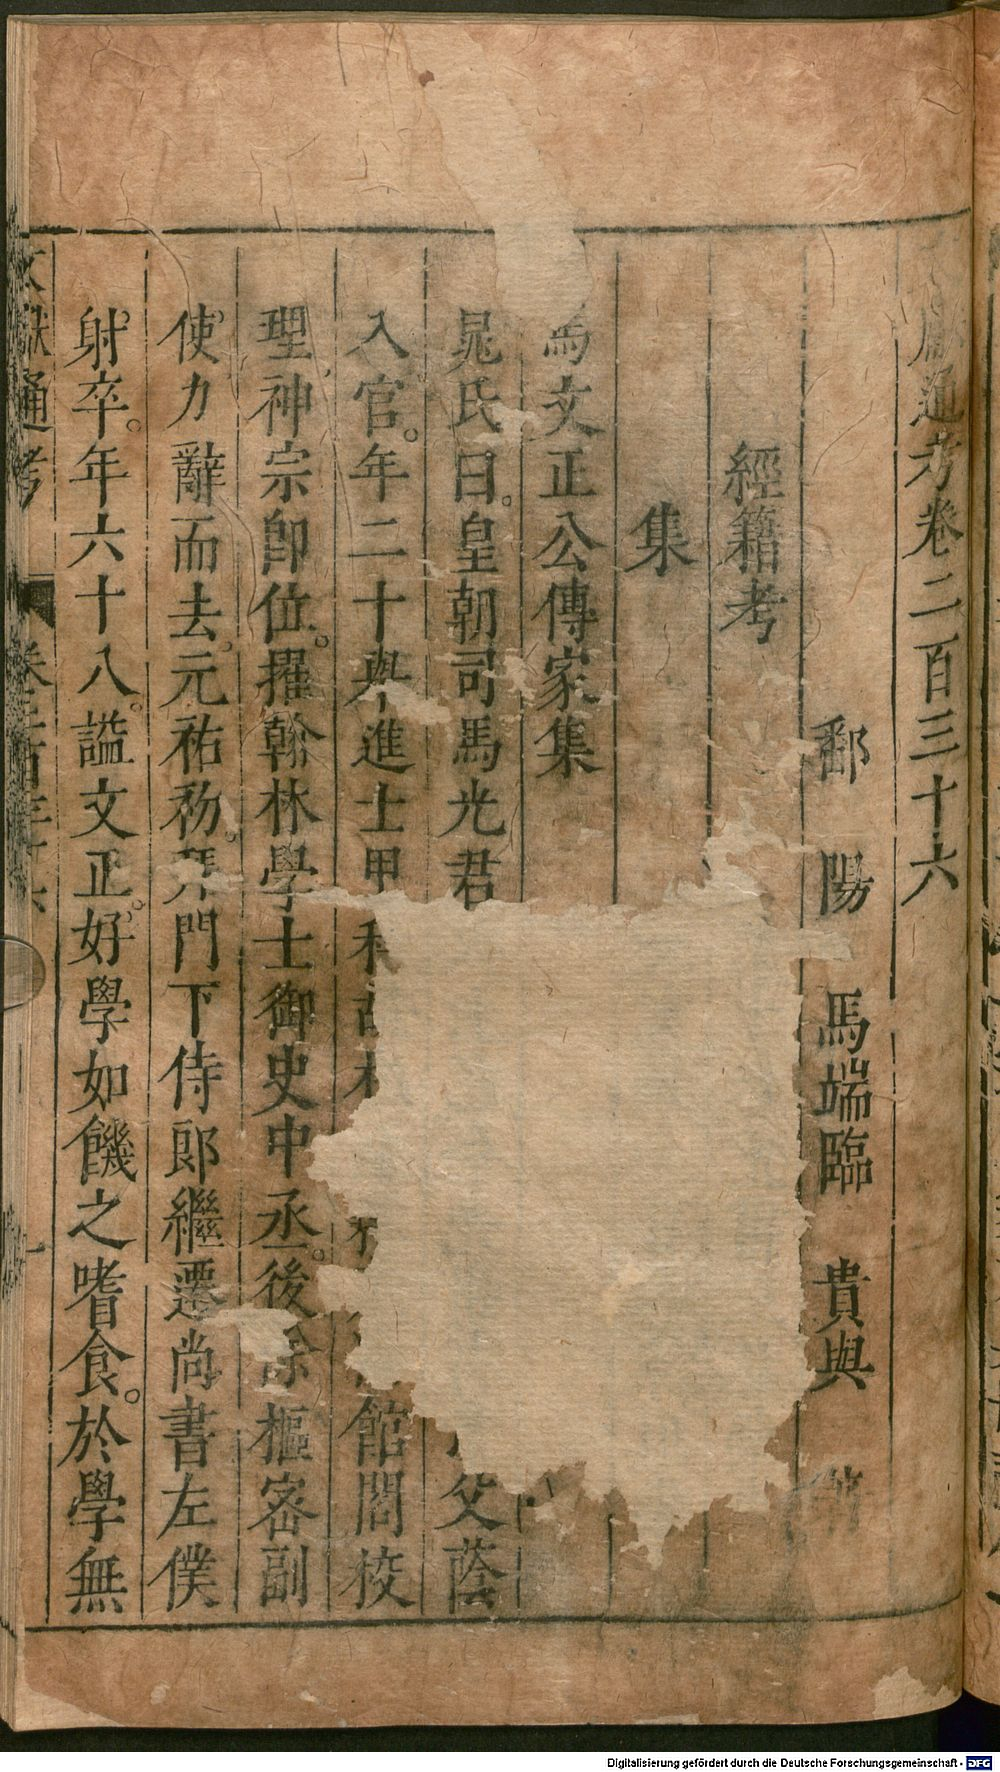 獻通考卷二百三十六
鄱陽馬端臨貴與
經籍考
集
馬文正公傳家集
晁氏曰皇朝司馬光君父蔭
入官。年二十舉進士甲科故館閣校
理神宗卽位。擢翰林學士御史中丞。後除樞密副
使力辭而去。元祐初。拜門下侍郎繼遷尚書左僕
射卒。年六十八。謚文正。好學如饑之嗜食。於學無
獻通考
Digitalisierung gefördert durch die Deutsche Forschungsgemeinschaft - DFG